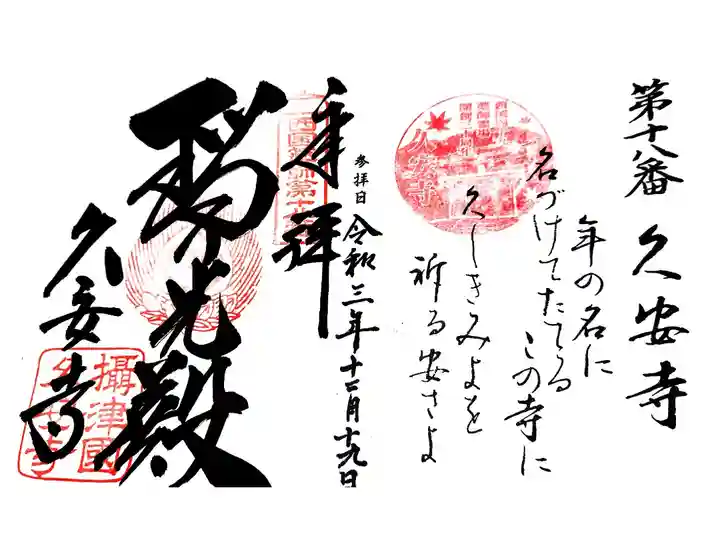 第十八番 久安寺
年の名に
名づけてたてる
この寺に
久しきみよを
祈る安さよ
久安寺
奉拝
参拝日 令和三年十二月十九日
瑞光殿
久安寺
攝津國
久安寺